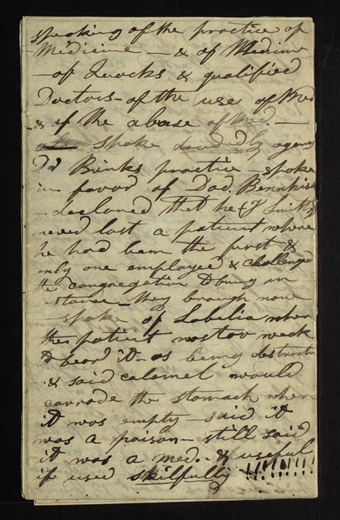 speaking of the practice of
Medicine — & of Medicine
— of Quacks & qualified
Doctors — of the use of Med
& of the abuse of Med. —
spoke decidedly agans
Dr Brinks practice — spoke
in favor of Doc.
— declared that he (J Smith)
never lost a patient where
he had been the first &
only one employee & challenged
the congregation to bring in
stance — they brough none
— spoke of Lobelia when
the patient was too weak
to bear it — as being destructive
& said calomel would
corrode the stomach when
it was empty — said it
was a poison — still said
it was a med. & useful
if used skilfully !!!!!!!!